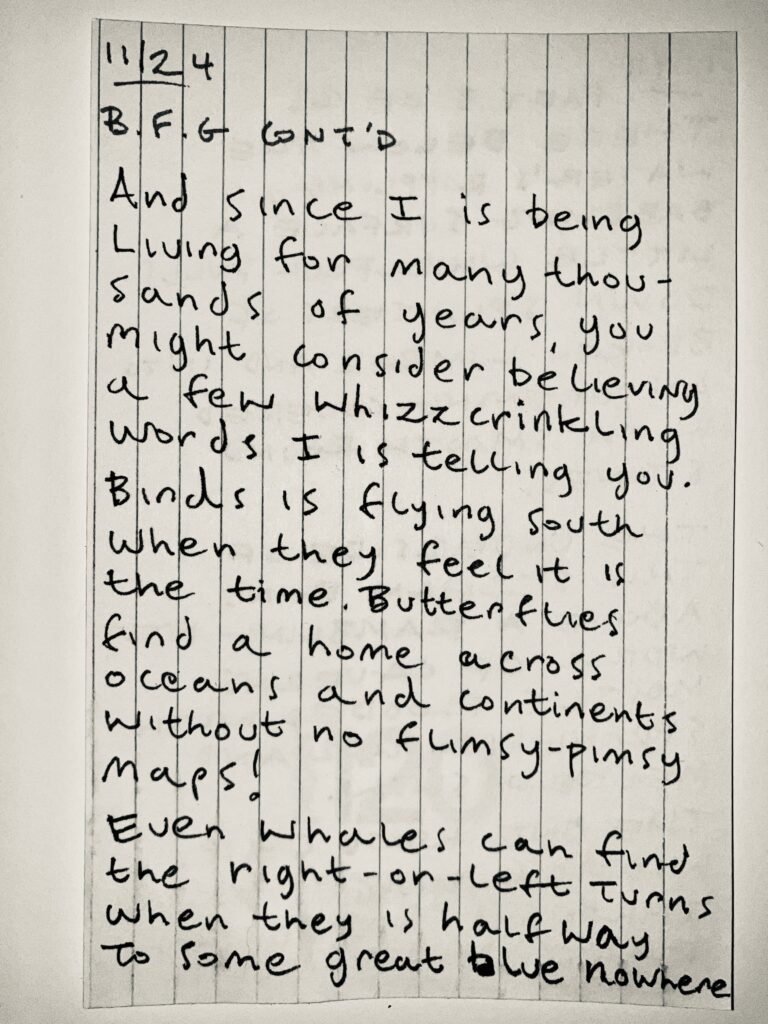 11/24
B.F.G CONT'D
And since I is being
Living for many thou-
sands of years, you
might consider believing
a few whizzcrinkling
words I is telling you.
Birds is flying south
when they feel it is
the time. Butterflies
find a home across
oceans and continents
without no flimsy-pimsy
maps!
Even whales can find
the right-or-left turns
when they is halfway
to some great blue nowhere